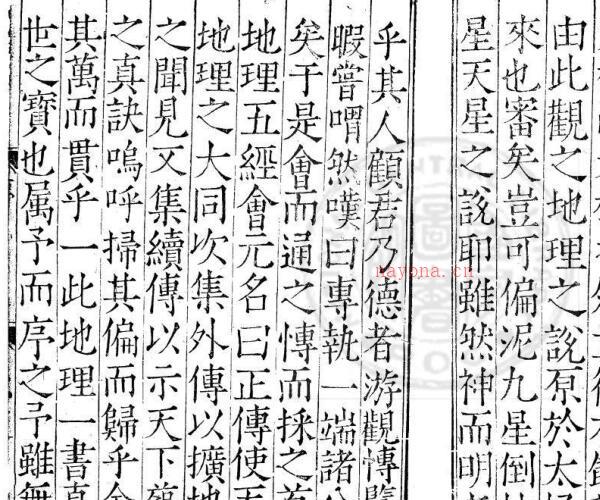 由此觀之地理之說原於太
來也審矣豈可偏泥九星倒
星天星之說耶雖然神而明
乎其人顧君乃德者游觀博覽
暇嘗喟然嘆曰專執一端諸
矣于是會而通之博而採之
地理五經會元名曰正傳使
地理之大同次集外傳以擴地
之聞見又集續傳以示天下
之真訣嗚呼掃其偏而歸乎
其萬而貫乎一此地理一書真
世之寶也属予而序之予雖無
nayona.cn